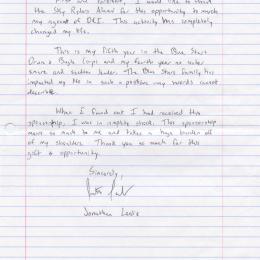 First and foremost, I would like to thank
the Sky Ryders Alumni for this opportunity to march
my ageout of DCI. This activity has completely
changed my life.
This is my fifth year in the Blue Stars
Drum & Bugle Corps and my fourth year as center
snare and section leader. The Blue Stars family has
impacted my life in such a positive way words cannot
describe.
When I found out I had received this
sponsorship, I was in complete shock. This sponsorship
means so much to me and takes a huge burden off
of my shoulders. Thank you so much for this
gift & opportunity.
Sincerely,
Jonathan